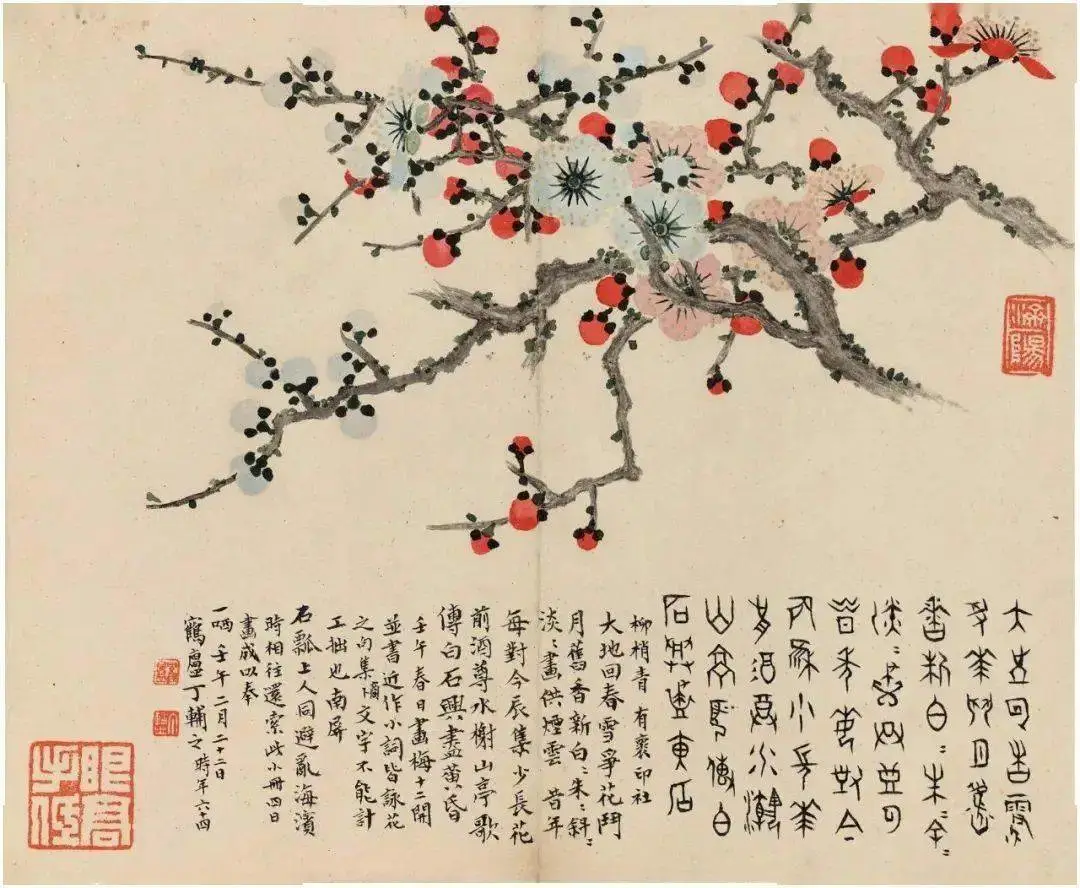 大地回春雪
爭花鬥月舊
香新白〻朱〻斜〻
淡〻畫供煙雲
昔年每對今
辰集少長花
前酒尊水榭
山亭歌傳白
石興盡黃昏
柳梢青 有褱印社
大地回春雪爭花鬥
月舊香新白〻朱〻斜〻
淡〻畫供煙雲 昔年
每對今辰集少長花
前酒尊水榭山亭歌
傳白石興盡黃昏
壬午春日畫梅十二開
並書近作小詞皆詠花
之句集商文字不能計
工拙也南屏
石瓢上人同避亂海濱
時相往還索此小冊四日
畫成以奉
一哂 壬午二月二十二日
鶴廬丁輔之時年六十四
眼高手低